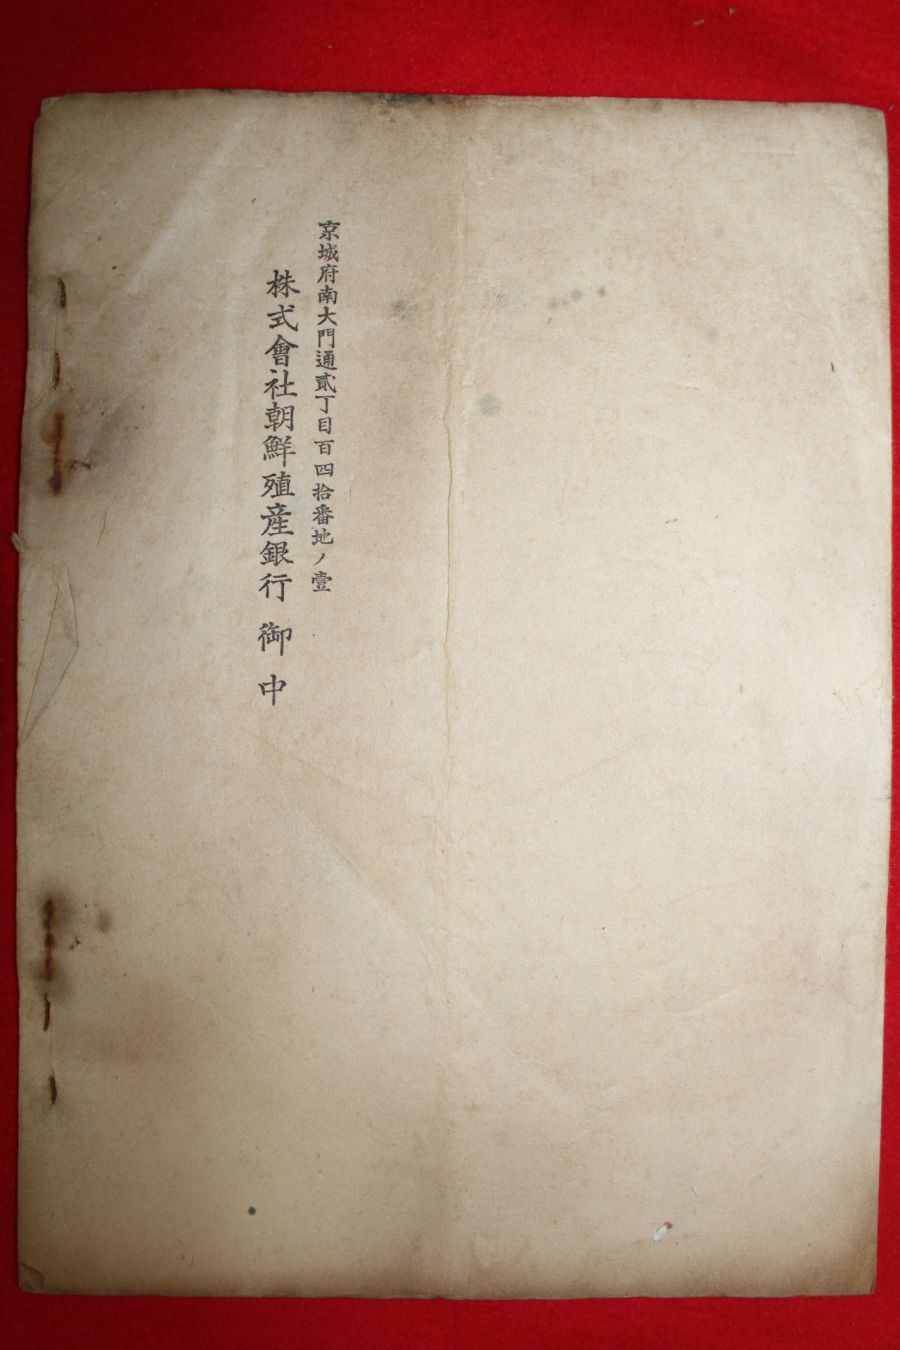 京城府南大門通貳丁目百四拾番地ノ壹
株式會社朝鮮殖產銀行 御中